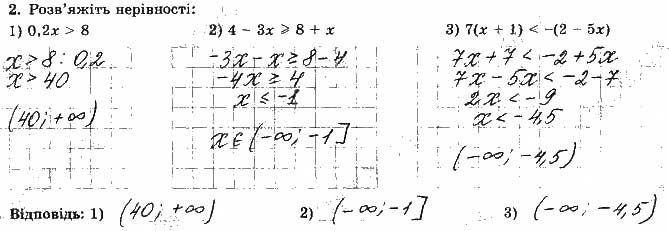 2. Розв'яжіть нерівності:
1) 0,2x > 8
x > 8 : 0,2
x > 40
(40; +∞)
2) 4 – 3x ⩾ 8 + x
-3x - x ⩾ 8 - 4
-4x ⩾ 4
x ≤ -1
x ∈ (-∞; -1]
3) 7(x + 1) < –(2 – 5x)
7x + 7 < -2 + 5x
7x - 5x < -2 - 7
2x < -9
x < -4,5
(-∞; -4,5)
Відповідь: 1) (40; +∞) 2) (-∞; -1] 3) (-∞; -4,5)